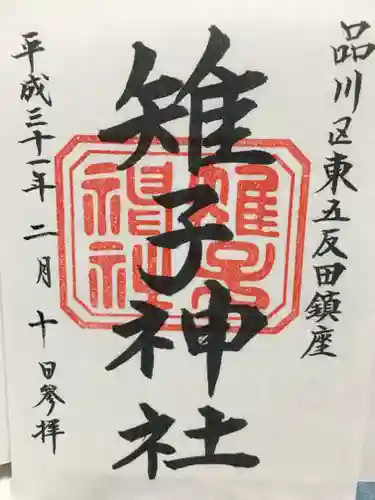 品川区東五反田鎮座
雉子神社
雉子神社
平成三十一年 二月 十日参拝